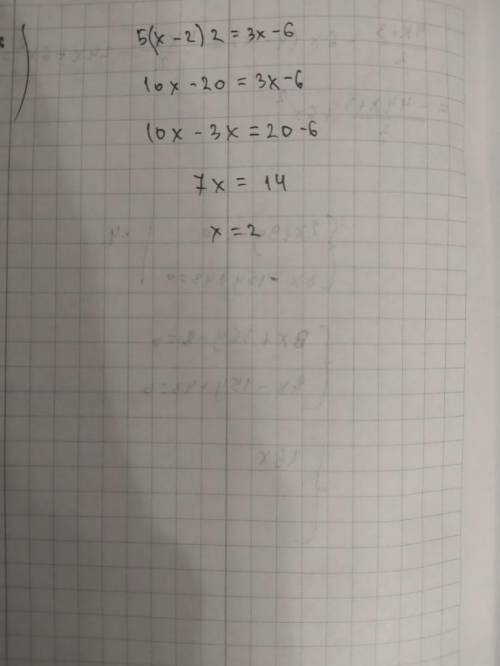 5(x-2)2=3x-6
10x-20=3x-6
10x-3x=20-6
7x=14
x=2